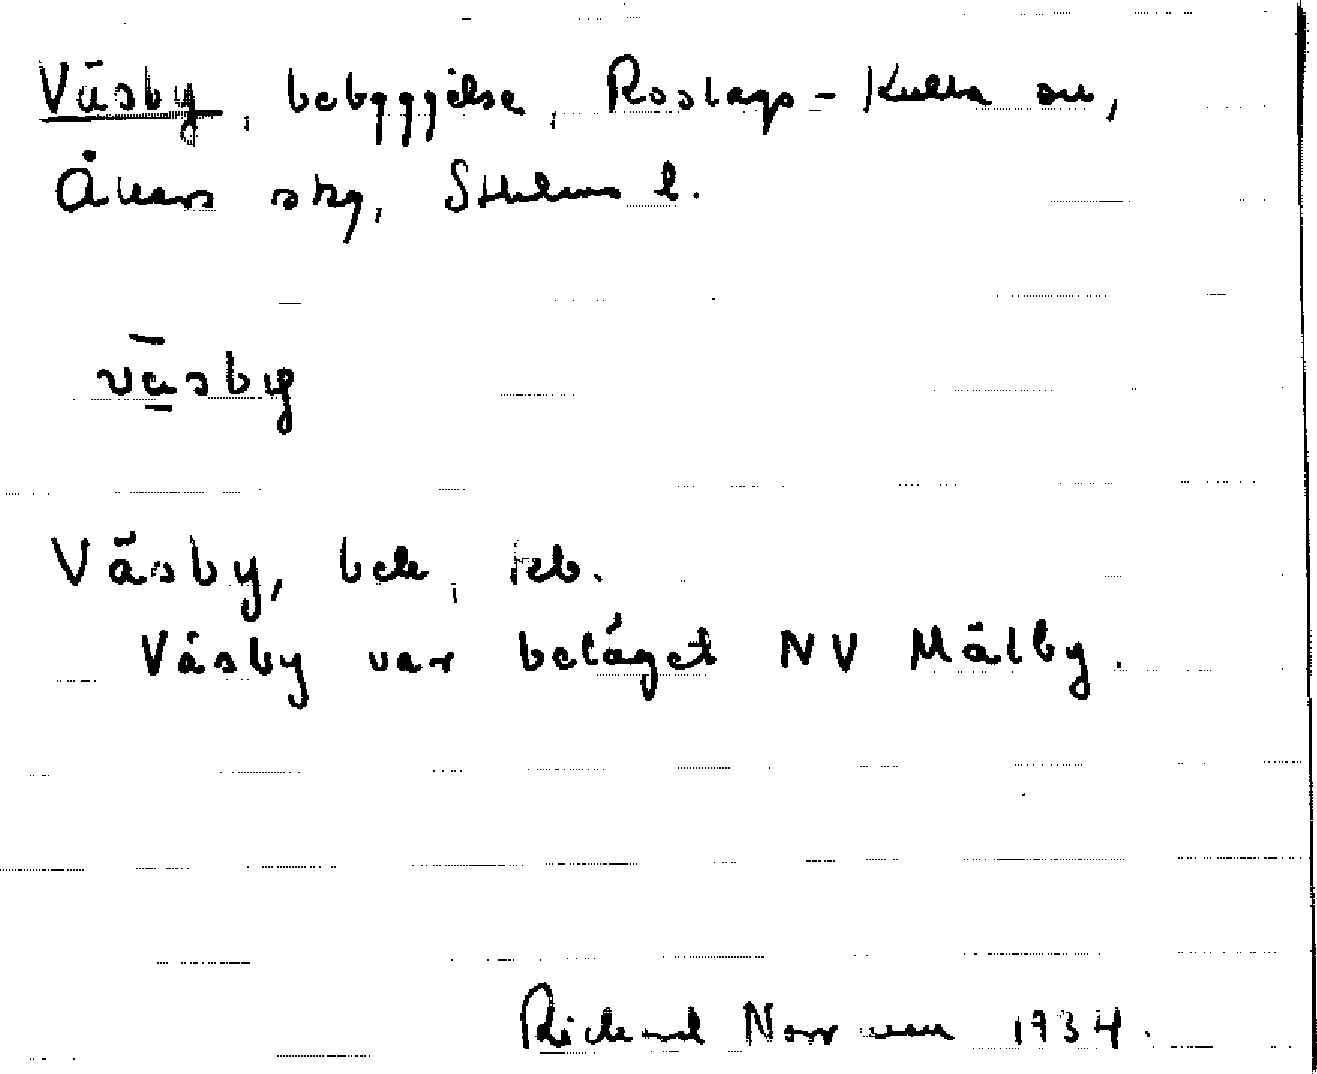 Väsby, bebyggelse, Roslags-Kulla sn,
Åkers skg, Sthlms l.
väsby
Väsby, beb.
Väsby var beläget NV Mälby.
Richard Norrman 1934.